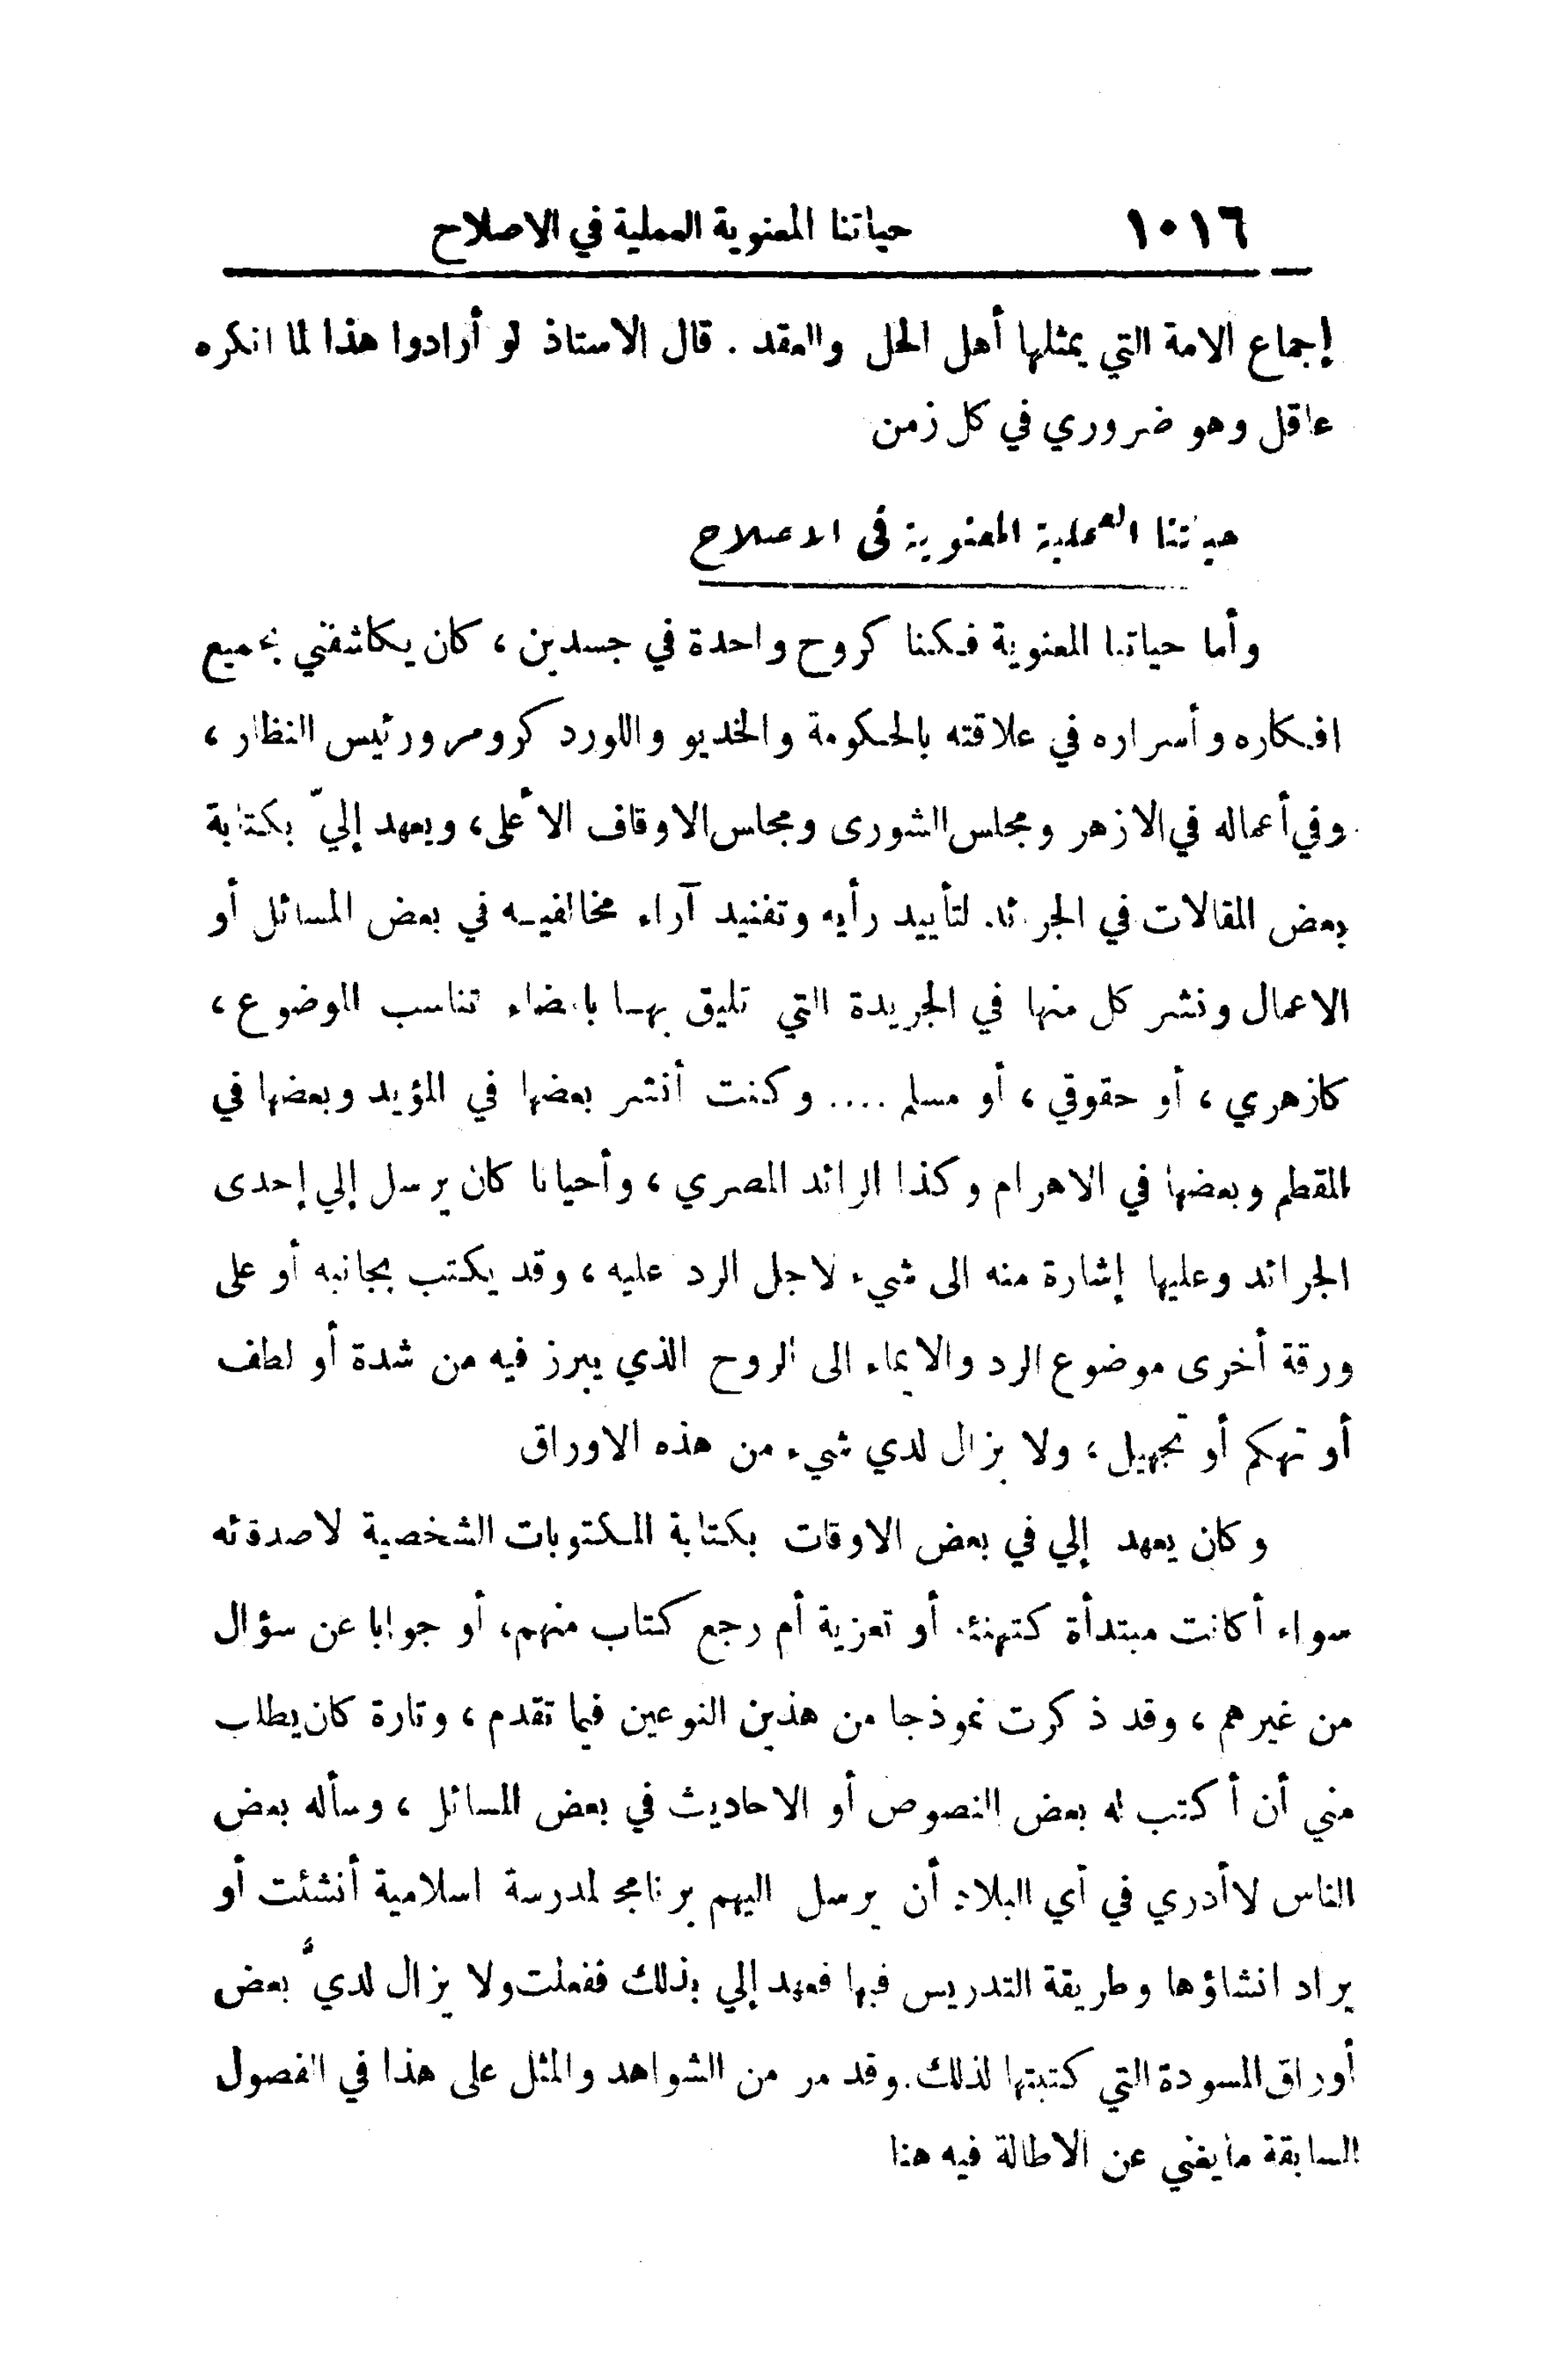 ١٠١٦ حياتنا المعنوية العملية في الاصلاح
إجماع الامة التي يمثلها أهل الحل والعقد . قال الاستاذ لو أرادوا هذا لما انكره
عاقل وهو ضروري في كل زمن
حياتنا العملية المعنوية في الاصلاح
وأما حياتنا المعنوية فكنا كروح واحدة في جسدين ، كان يكاشفني بجميع
افكاره وأسراره في علاقته بالحكومة والخديو واللورد كرومر ورئيس النظار ،
وفي أعماله في الازهر ومجلس الشورى ومجلس الاوقاف الأعلى، ويعهد إليّ بكتابة
بعض المقالات في الجرائد لتأييد رأيه وتفنيد آراء مخالفيه في بعض المسائل أو
الاعمال ونشر كل منها في الجريدة التي تليق بها بامضاء تناسب الموضوع ،
كازهري ، أو حقوقي ، أو مسلم .... وكنت أنشر بعضها في المؤيد وبعضها في
المقطم وبعضها في الاهرام وكذا الرائد المصري ، وأحيانا كان يرسل إلي إحدى
الجرائد وعليها إشارة منه الى شيء لاجل الرد عليه ، وقد يكتب بجانبه أو على
ورقة أخرى موضوع الرد والايماء الى الروح الذي يبرز فيه من شدة أو لطف
أو تهكم أو تجهيل ، ولا يزال لدي شيء من هذه الاوراق
وكان يعهد إلي في بعض الاوقات بكتابة المكتوبات الشخصية لاصدقائه
سواء أكانت مبتدأة كتهنئة أو تعزية أم رجع كتاب منهم، أو جوابا عن سؤال
من غيرهم ، وقد ذكرت نموذجا من هذين النوعين فيما تقدم ، وتارة كان يطلب
مني أن أكتب له بعض النصوص أو الاحاديث في بعض المسائل ، وسأله بعض
الناس لا أدري في أي البلاد أن يرسل اليهم برنامج لمدرسة اسلامية أنشئت أو
يراد انشاؤها وطريقة التدريس فيها فعهد إلي بذلك ففعلت ولا يزال لديّ بعض
أوراق المسودة التي كتبتها لذلك. وقد مر من الشواهد والمثل على هذا في الفصول
السابقة ما يغني عن الاطالة فيه هنا